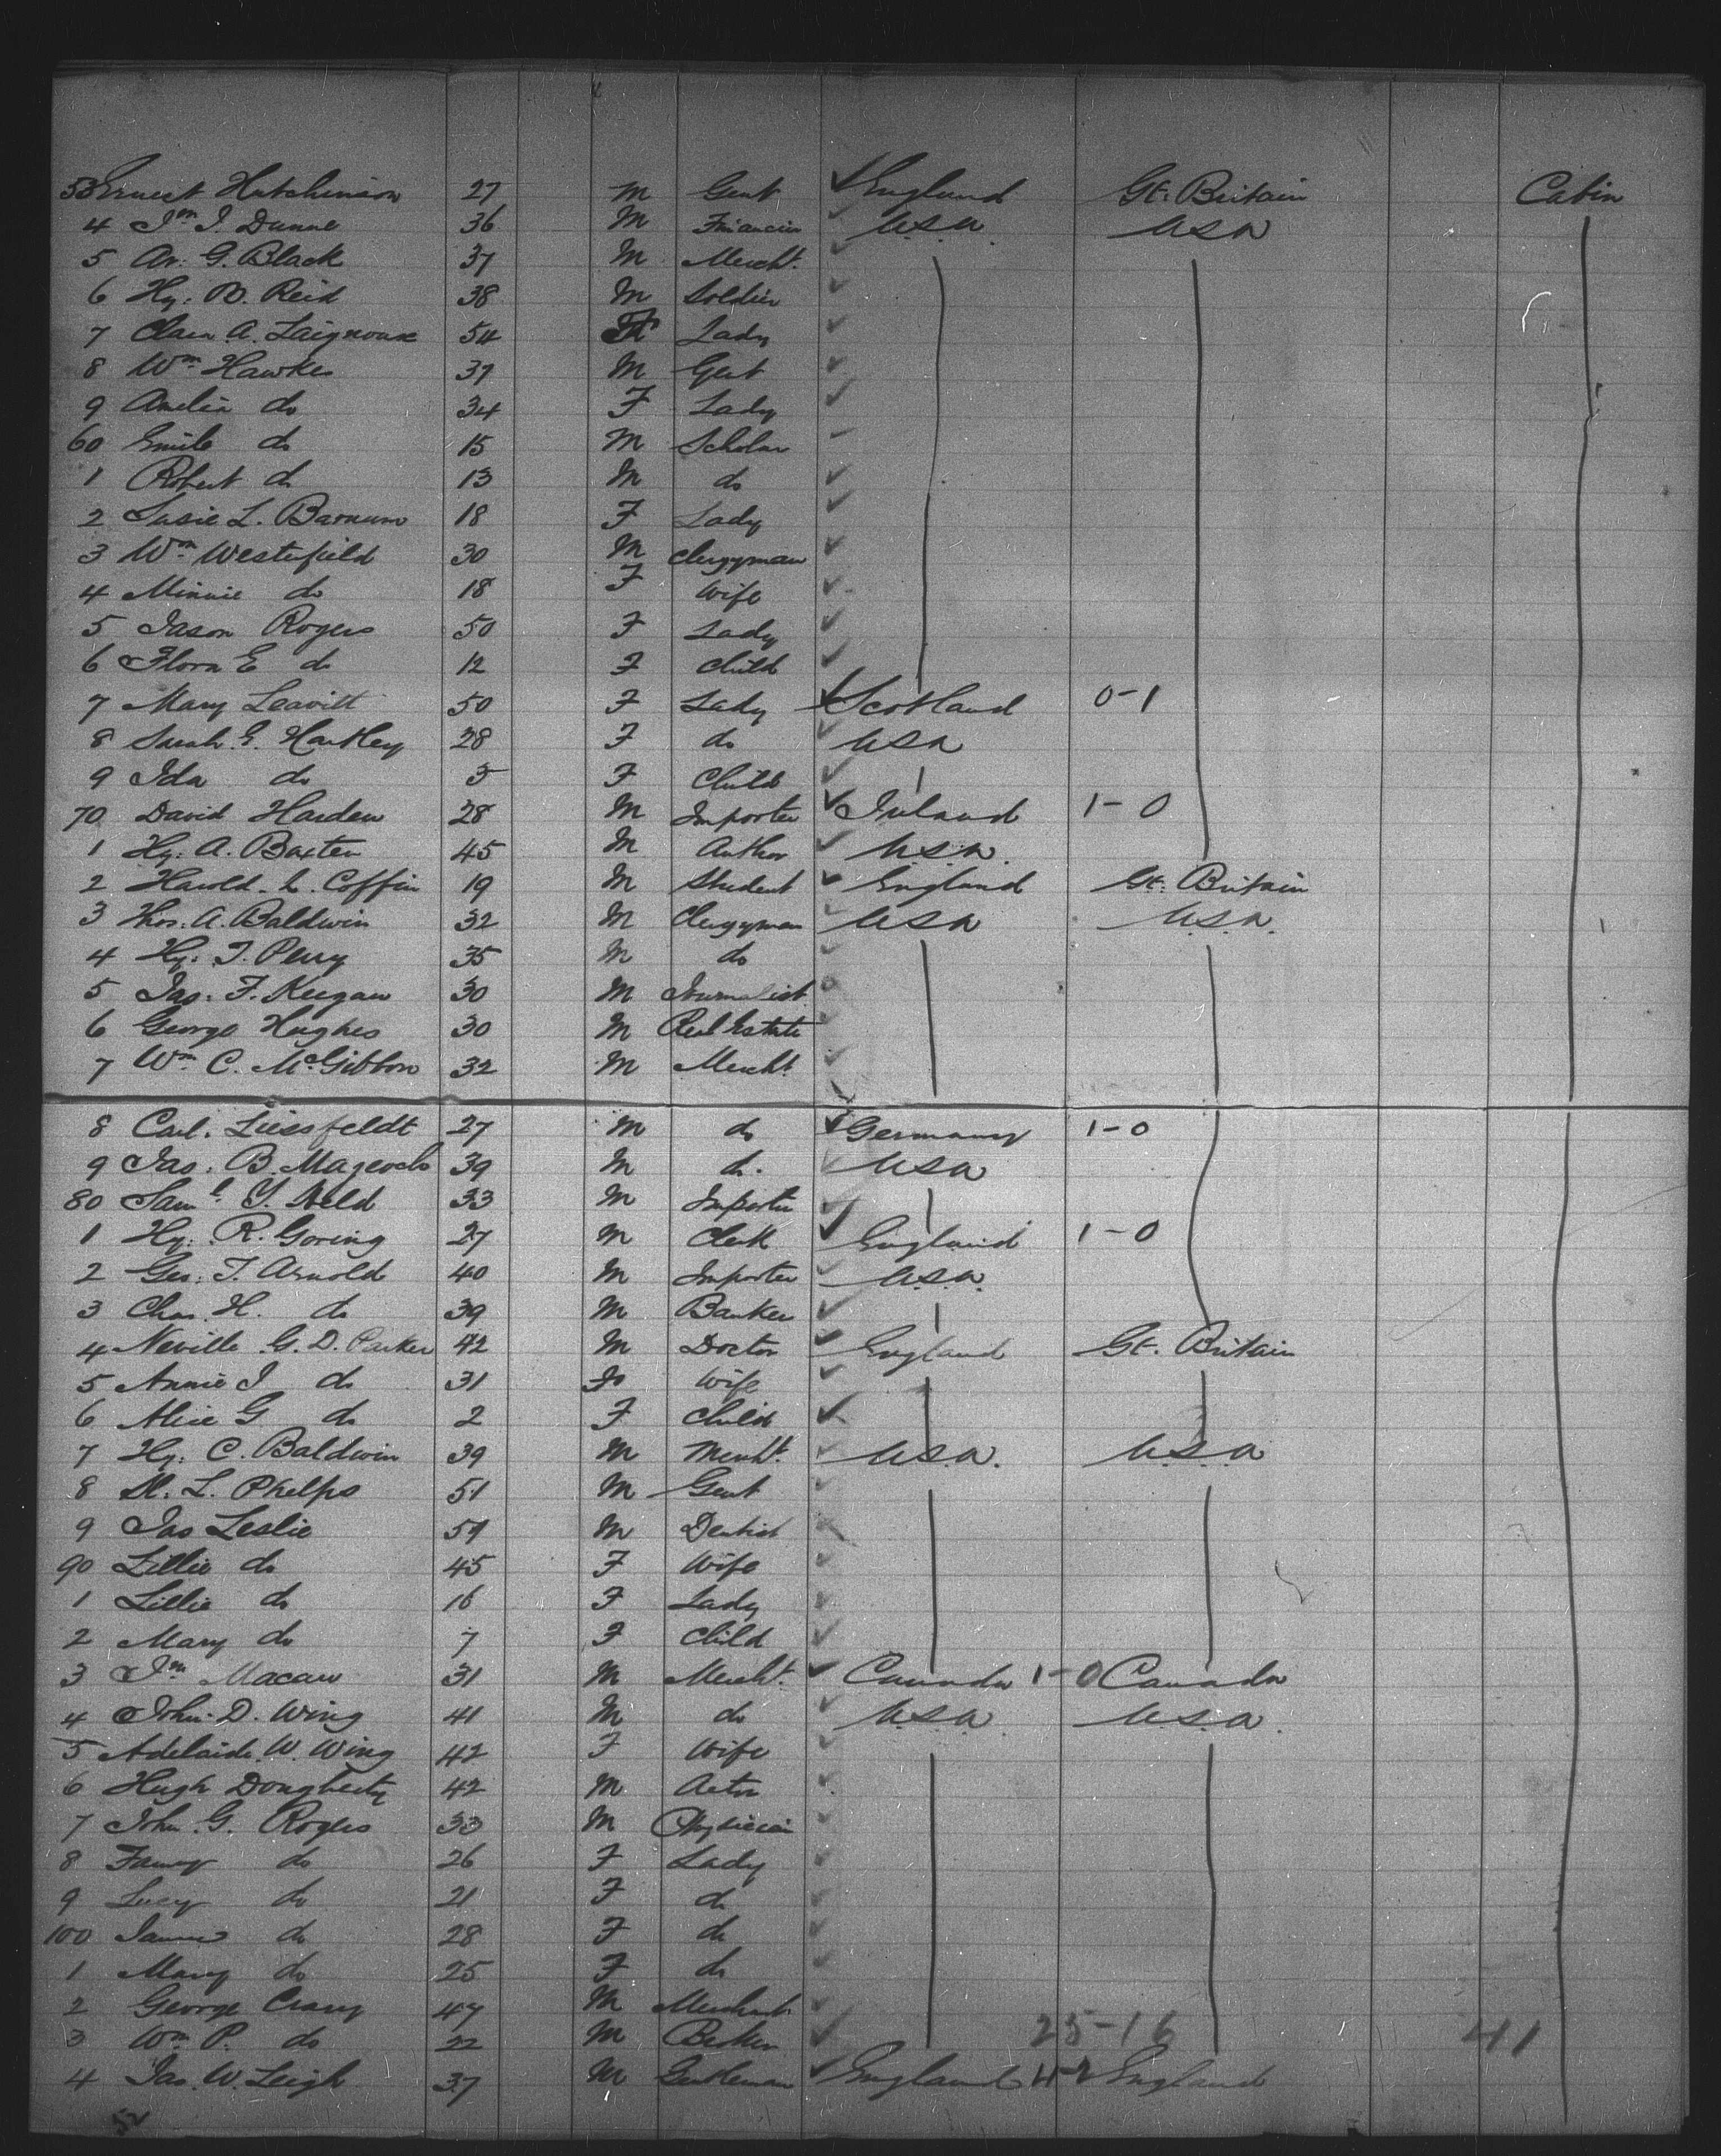 53 Ernest Hutchinson 27 M Gent England Gt. Britain Cabin
4 Jm J. Dunne 36 M Financier U.S.A. U.S.A
5 Ar. G. Black 37 M Mercht.
6 Hy. B. Reid 38 M Soldier
7 Clara A. 54 F Lady
8 Wm Hawkes 37 M Gent
9 Amelia do 34 F Lady
60 Emile do 15 M Scholar
1 Robert do 13 M do
2 Susie L. Barnum 18 F Lady
3 Wm Westerfield 30 M Clergyman
4 Minnie do 18 F Wife
5 Jason Rogers 50 F Lady
6 Flora E do 12 F Child
7 Mary Leavitt 50 F Lady Scotland 0-1
8 Sarah E. Hartley 28 F do U.S.A
9 Ida do 5 F Child
70 David Harden 28 M Importer Ireland 1-0
1 Hy. A. Baxter 45 M Author U.S.A.
2 Harold L. Coffin 19 M Student England Gt. Britain
3 Thos. A. Baldwin 32 M Clergyman USA U.S.A.
4 Hy. T. Perry 35 M do
5 Jas. F. Keegan 30 M Journalist
6 George Hughes 30 M Real Estate
7 Wm C. McGibbon 32 M Mercht.
8 Carl. Liessfeldt 27 M do Germany 1-0
9 Jas. B. 39 M do. USA
80 Saml Y. Held 33 M Importer
1 Hy. R. Goring 27 M Clerk England 1-0
2 Geo. T. Arnold 40 M Importer U.S.A.
3 Chas. H. do 39 M Banker
4 Neville G. D. Parker 42 M Doctor England Gt. Britain
5 Annie J do 31 F Wife
6 Alice G do 2 F Child
7 Hy. C. Baldwin 39 M Mercht. U.S.A. U.S.A
8 L. Phelps 51 M Gent
9 Jas Leslie 51 M Dentist
90 Lillie do 45 F Wife
1 Lillie do 16 F Lady
2 Mary do 7 F Child
3 Jm Macaw 31 M Mercht. Canada 1-0 Canada
4 John D. Wing 41 M do U.S.A U.S.A.
5 Adelaide W. Wing 42 F Wife
6 Hugh Dougherty 42 M Actor
7 John G. Rogers 33 M Physician
8 Fanny do 26 F Lady
9 Lucy do 21 F do
100 do 28 F do
1 Mary do 25 F do
2 George Crary 47 M Merchant
3 Wm P. do 22 M 25-16 41
4 Jas. W. Leigh 37 M Gentleman England 4-2 England
52